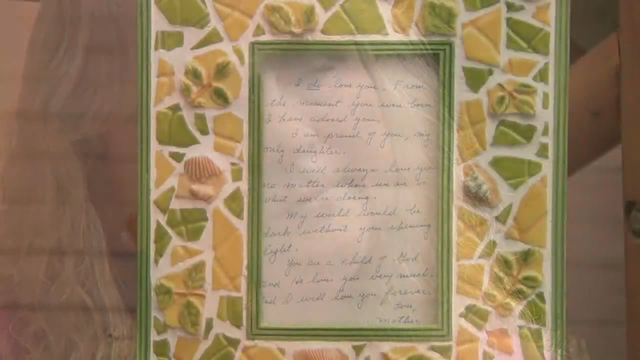 I do love you. From
the moment you were born
I have adored you.
I am proud of you, my
only daughter.
I will always love you
no matter where we are or
what we're doing.
My world would be
dark without your shining
light.
You are a child of God
and He loves you very much.
And I will love you forever.
Love,
Mother